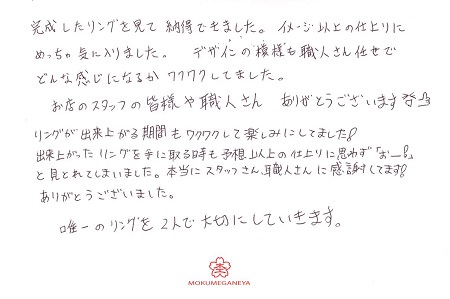 完成したリングを見て納得できました。イメージ以上の仕上りに
めっちゃ気に入りました。デザインの模様も職人さん任せで
どんな感じになるかワクワクしてました。
お店のスタッフの皆様や職人さん ありがとうございます
リングが出来上がる期間もワクワクして楽しみにしてました!
出来上がったリングを手に取る時も予想以上の仕上りに思わず「おー!」
と見とれてしまいました。本当にスタッフさん、職人さんに感謝してます!
ありがとうございました。
唯一のリングを2人で大切にしていきます。
MOKUMEGANEYA